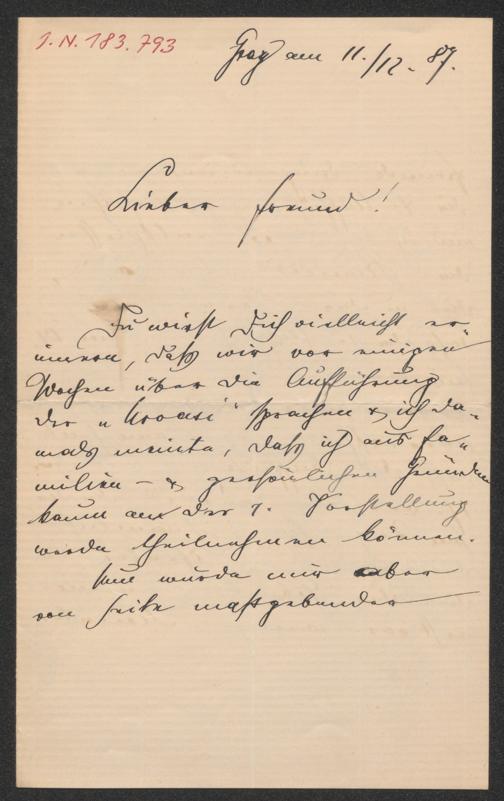 I.N. 183.793
Graz am 11./12. 87.
Lieber Freund!
Du wirst Dich vielleicht er-
innern, daß wir vor einigen
Wochen über die Aufführung
der „ " sprachen & ich da-
mals meinte, daß ich aus Fa-
milien- & persönlichen Gründen
kaum an der 1. Vorstellung
werde theilnehmen können.
Nun wurde mir aber
von Seite maßgebender